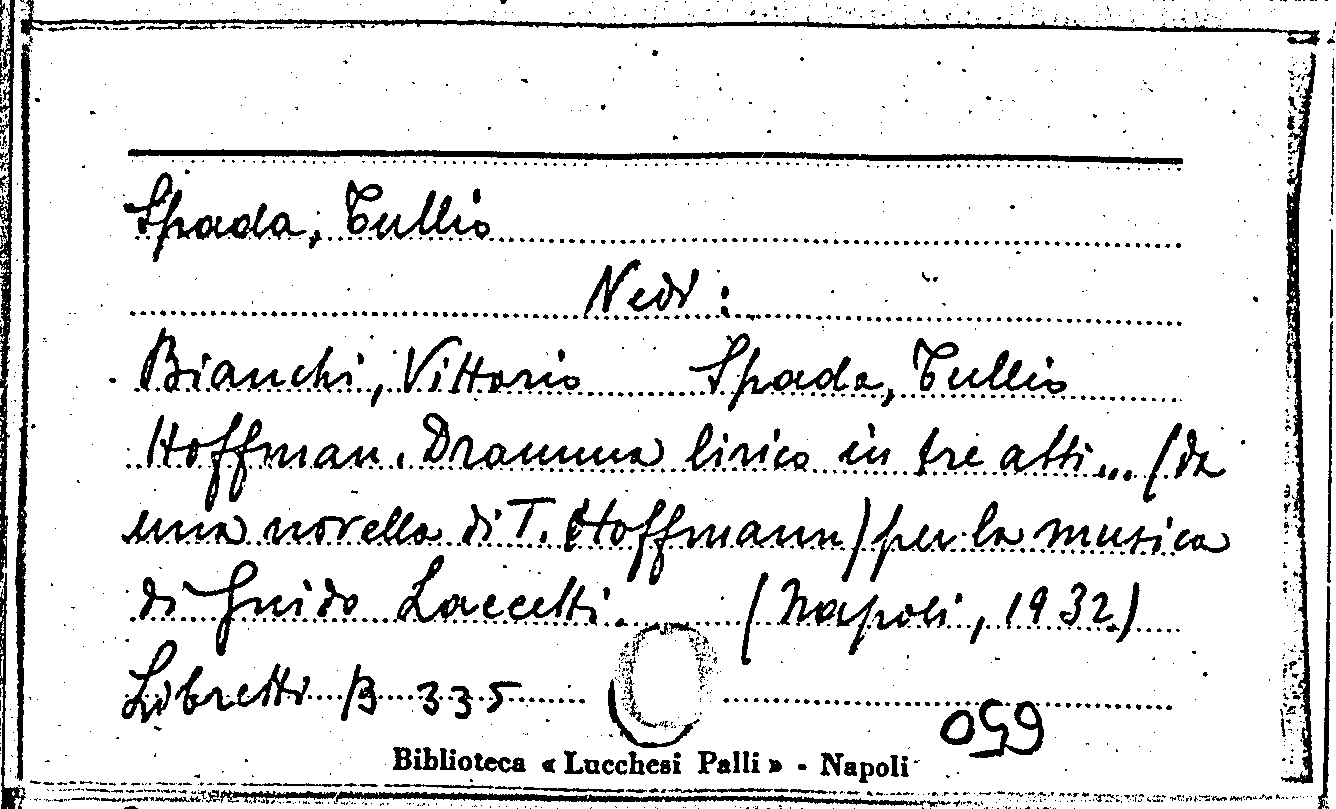 Spada, Tullio
Vedi:
Bianchi, Vittorio Spada, Tullio
Hoffman. Dramma lirico in tre atti... (da
una novella di T. Hoffmann) per la musica
di Guido Laccetti. (Napoli, 1932.)
Libretti B 335
650
Biblioteca « Lucchesi Palli » - Napoli